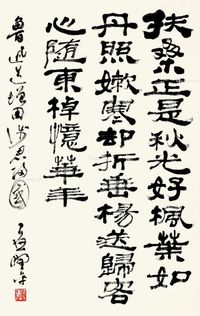 扶桑正是秋光好楓葉如
丹照嫩寒却折垂楊送歸客
心隨東棹憶華年
魯迅送增田涉君歸國